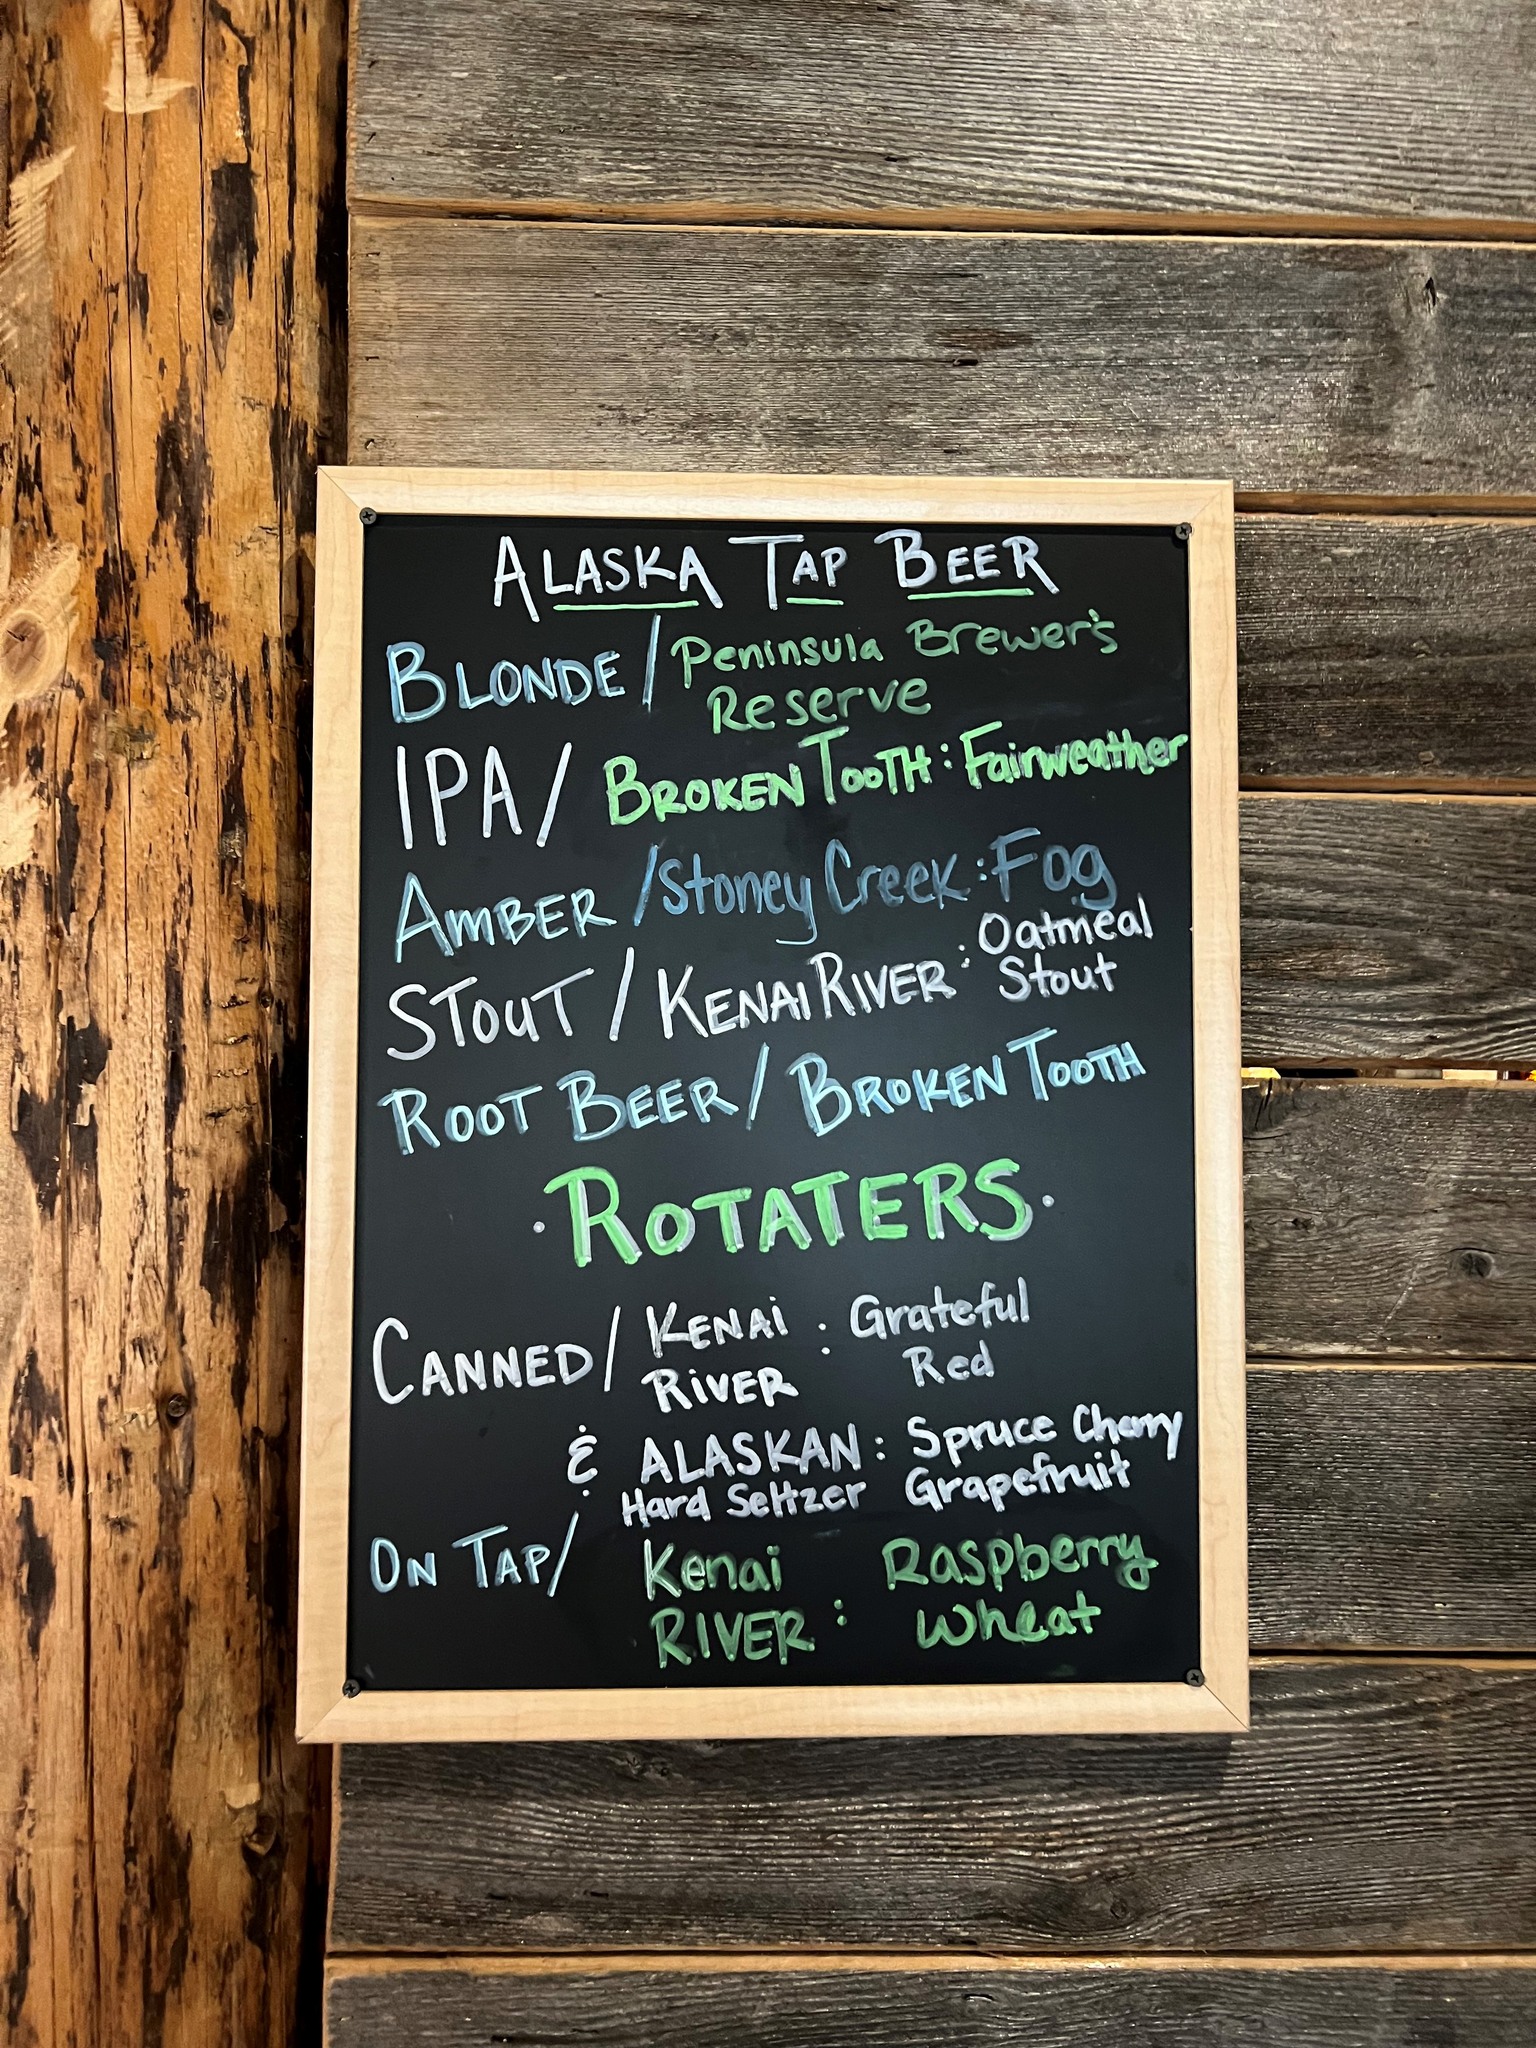 ALASKA TAP BEER
BLONDE / Peninsula Brewer's
Reserve
IPA / BROKEN TOOTH : Fairweather
AMBER / Stoney Creek : Fog
STOUT / KENAI RIVER : Oatmeal
Stout
ROOT BEER / BROKEN TOOTH
· ROTATERS ·
CANNED / KENAI : Grateful
RIVER Red
& ALASKAN : Spruce Cherry
Hard Seltzer Grapefruit
ON TAP / Kenai Raspberry
RIVER : Wheat